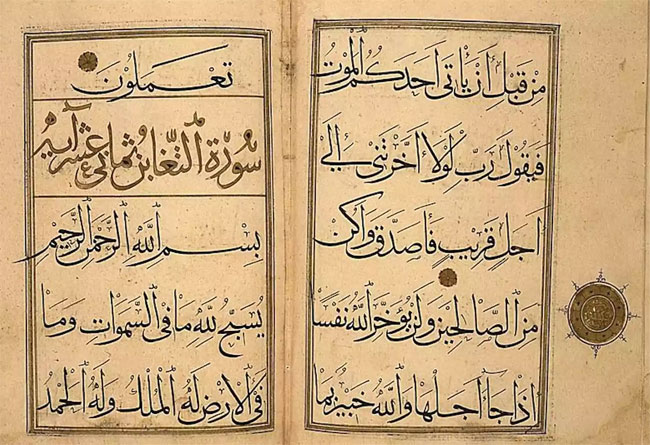 من قبل أن يأتى أحدكم الموت
فيقول رب لولا أخرتنى إلى
أجل قريب فأصدق وأكن
من الصالحين ولن يؤخر الله نفسا
إذا جاء أجلها والله خبير بما
تعملون
سورة التغابن ثمانى عشر آية
بسم الله الرحمن الرحيم
يسبح لله ما فى السموات وما
فى الأرض له الملك وله الحمد